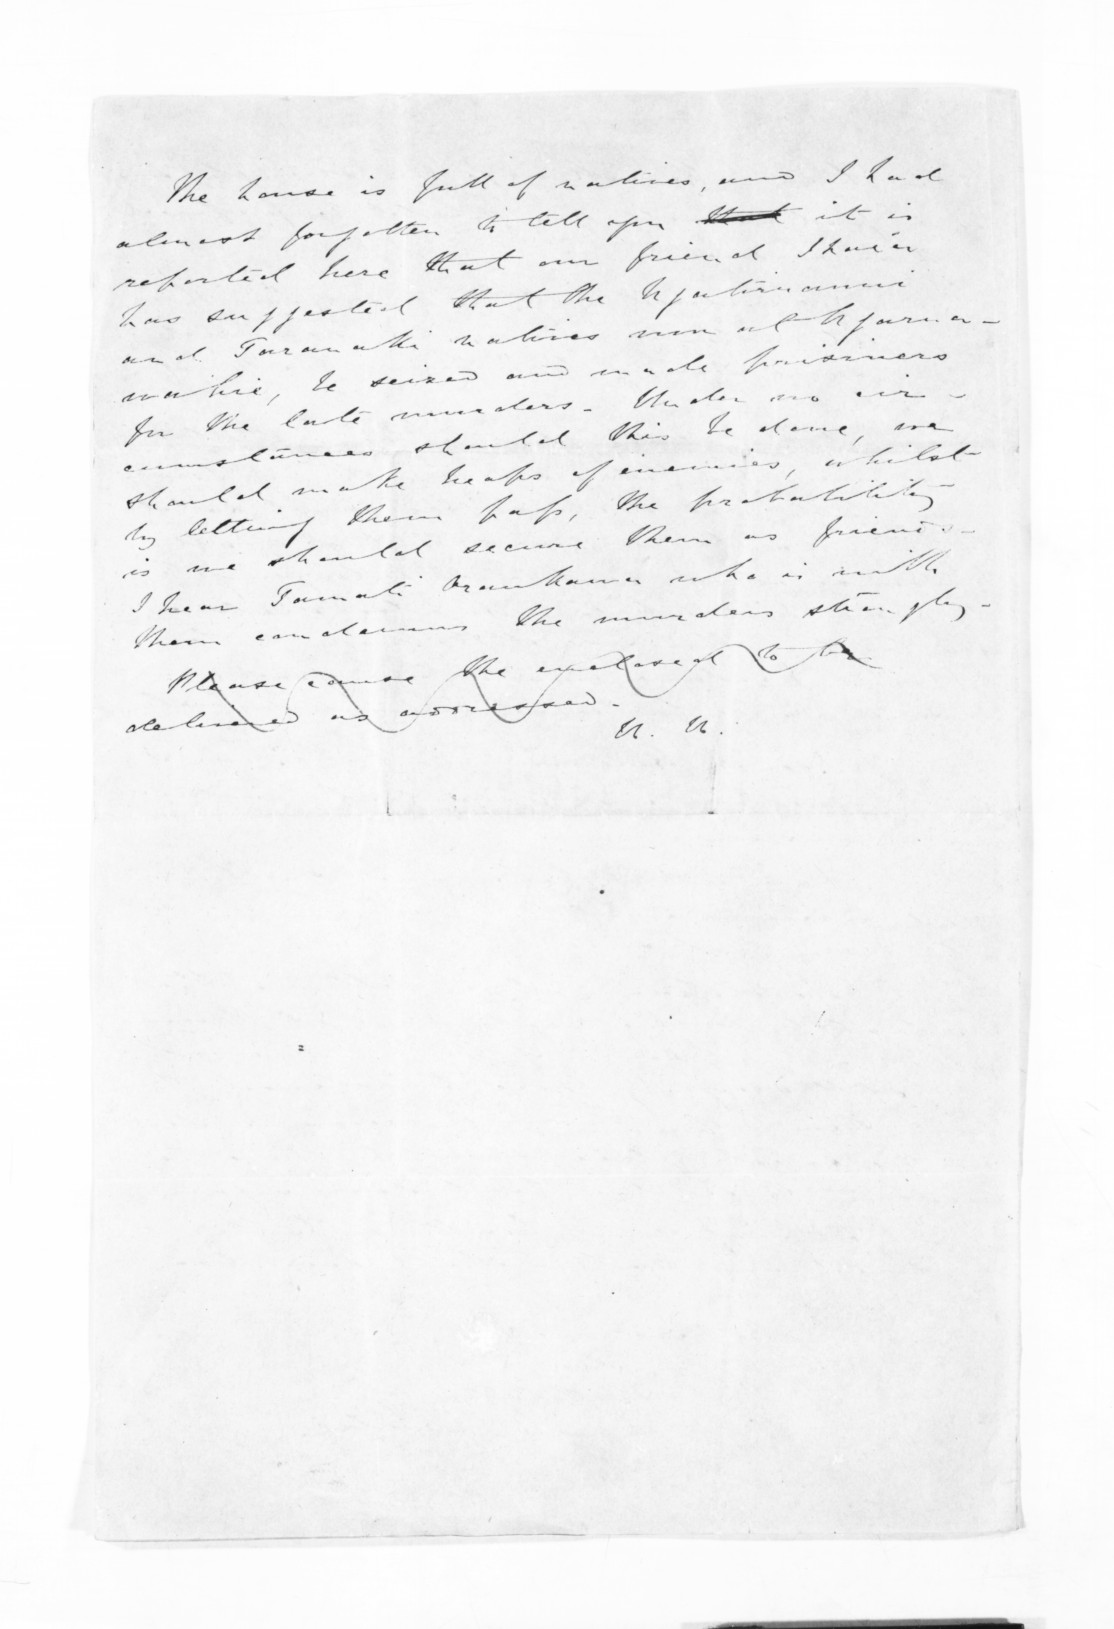 The house is full of natives, and I had
almost forgotten to tell you that it is
reported here that our friend Ihaia
has suggested that the Ngatiruanui
and Taranaki natives now at Ngarua-
wahie, be seized and made prisoners
for the late murders. Under no cir-
cumstances should this be done, we
should make heaps of enemies, whilst
by letting them pass, the probability
is we should secure them as friends.
I hear Tamati who is with
them condemns the murders strongly.
Please cause the enclosed to be
delivered as addressed.